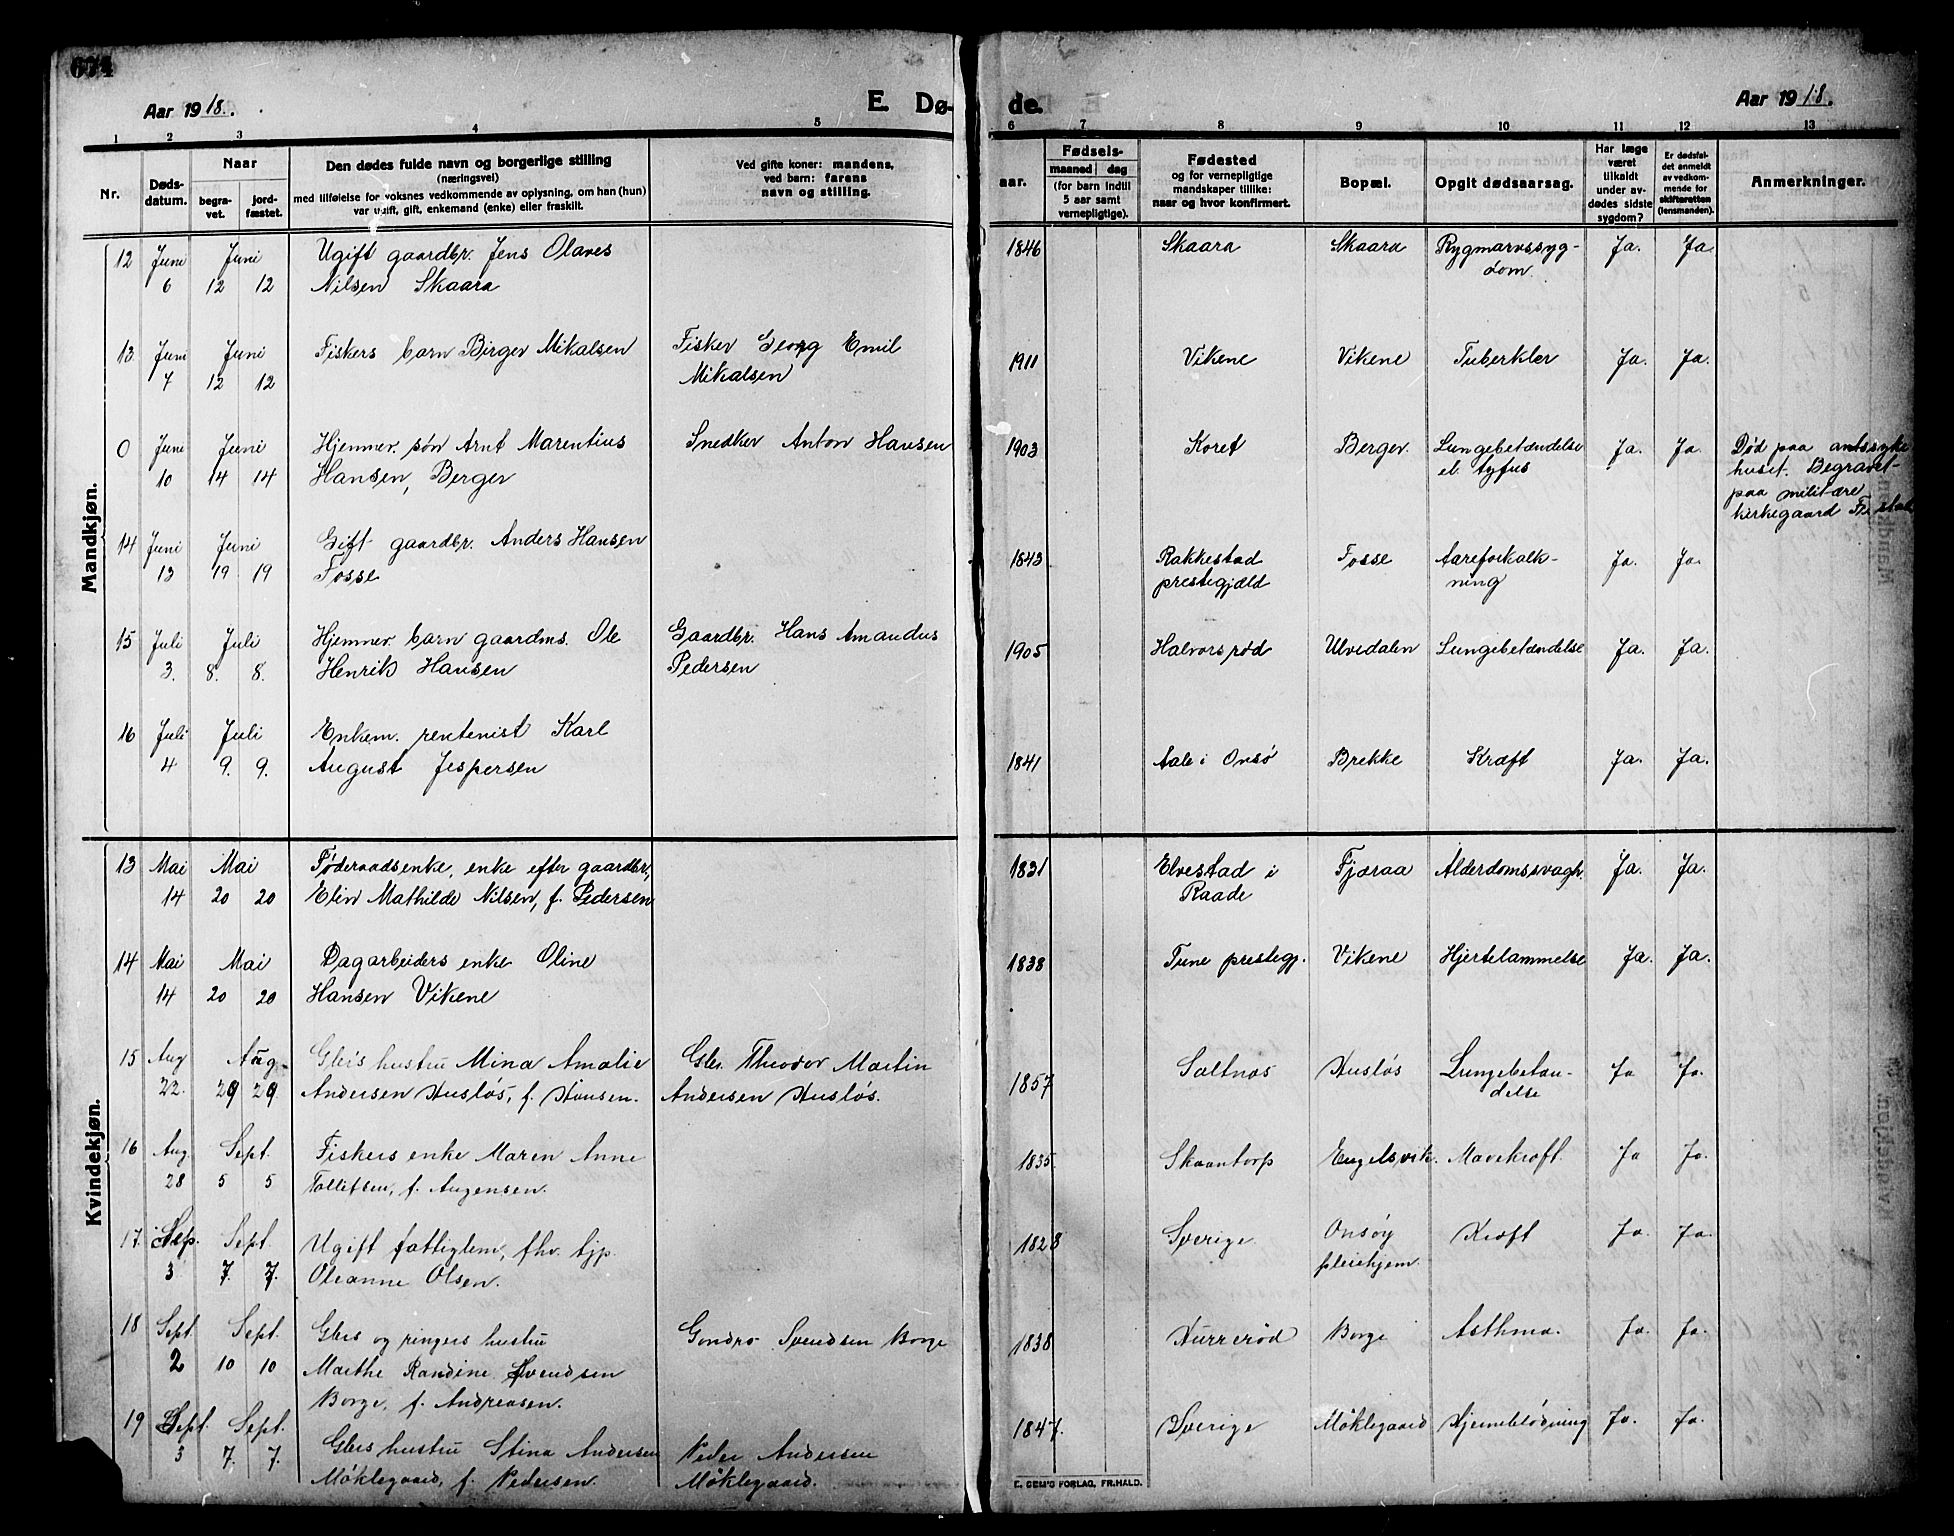 674
Aar 1918. E. Dø- de. Aar 1918.
1 2 3 4 5 6 7 8 9 10 11 12 13
Nr. Døds-datum. Naar begra-vet. jord-fæstet. Den dødes fulde navn og borgerlige stilling (næringsvei) med tilføielse for voksnes vedkommende av oplysning, om han (hun) var ugift, gift, enkemand (enke) eller fraskilt. Ved gifte koner: mandens, ved barn: farens navn og stilling. aar. Fødsels- maaned dag (for barn indtil 5 aar samt vernepligtige). Fødested og for vernepligtige mandskaper tillike: naar og hvor konfirmert. Bopæl. Opgit dødsaarsag. Har læge været tilkaldt under av-dødes sidste sygdom? Er dødsfal-det anmeldt av vedkom-mende for skifteretten (lensmanden). Anmerkninger.
Mandkjøn.
12 Juni Juni Ugift gaardbr. Jens Olaves 1846 Skaara Skaara Rygmarvssyg- Ja. Ja.
6 12 12 Nilsen Skaara dom.
13 Juni Juni Fiskers barn Birger Mikalsen Fisker Georg Emil 1911 Vikene Vikene Tuberkler Ja. Ja.
7 12 12 Mikalsen
0 Juni Juni Hjemmev. søn Arnt Marentius Snedker Anton Hansen 1903 Koret Berger. Lungebetændelse Ja. Ja. Død paa amtssyke
10 14 14 Hansen, Berger el. tyfus huset. Begravet
paa militære
kirkegaard
14 Juni Juni Gift gaardbr. Anders Hansen 1843 Rakkestad Fosse Aareforkalk- Ja. Ja.
13 19 19 Fosse prestegjæld ning
15 Juli Juli Hjemmev. barn gaardms. Ole Gaardbr. Hans Amandus 1905 Halvorsrød Ulvedalen Lungebetændelse Ja. Ja.
3. 8. 8. Henrik Hansen Pedersen
16 Juli Juli Enkem. rentenist Karl 1841 Aale i Onsø Brekke Kræft Ja. Ja.
4 9. 9. August Jespersen
Kvindekjøn.
13 Mai Mai Føderaadsenke, enke efter gaardbr, 1831 Elvestad i Fjæraa Alderdomssvagh. Ja. Ja.
14 20 20 Elin Mathilde Nilsen, f. Pedersen Raade
14 Mai Mai Dagarbeiders enke Oline 1838 Tune prestegj. Vikene Hjertelammelse Ja. Ja.
14 20 20 Hansen Vikene
15 Aug Aug. Gbrs hustru Mina Amalie Gbr. Theodor Martin 1857 Saltnes Husløs Lungebetæn- Ja Ja.
22. 29 29. Andersen Husløs, f. Hansen. Andersen Husløs. delse
16 Aug. Sept. Fiskers enke Maren Anne 1835. Skaantorp Engelsvik. Mavekræft. Ja Ja.
28 5 5 Tollefsen, f. Augensen.
17. Sep. Sept. Ugift fattiglem, fhv. tjp. 1828 Sverige. Onsøy Kræft Ja. Ja.
3 7. 7. Oleanne Olsen. pleiehjem.
18 Sept. Sept. Gbrs og ringers hustru Svendsen Borge 1838 Hurrerød Borge Asthma. Ja. Ja.
2 10 10 Marthe Randine Svendsen
Borge, f. Andreasen.
19 Sept. Sept. Gbrs hustru Stina Andersen Peder Andersen 1847. Sverige Møklegaard Hjerneblødning Ja. Ja.
3 7. 7. Møklegaard, f. Pedersen. Møklegaard.
E. SEM'S FORLAG, FR.HALD.